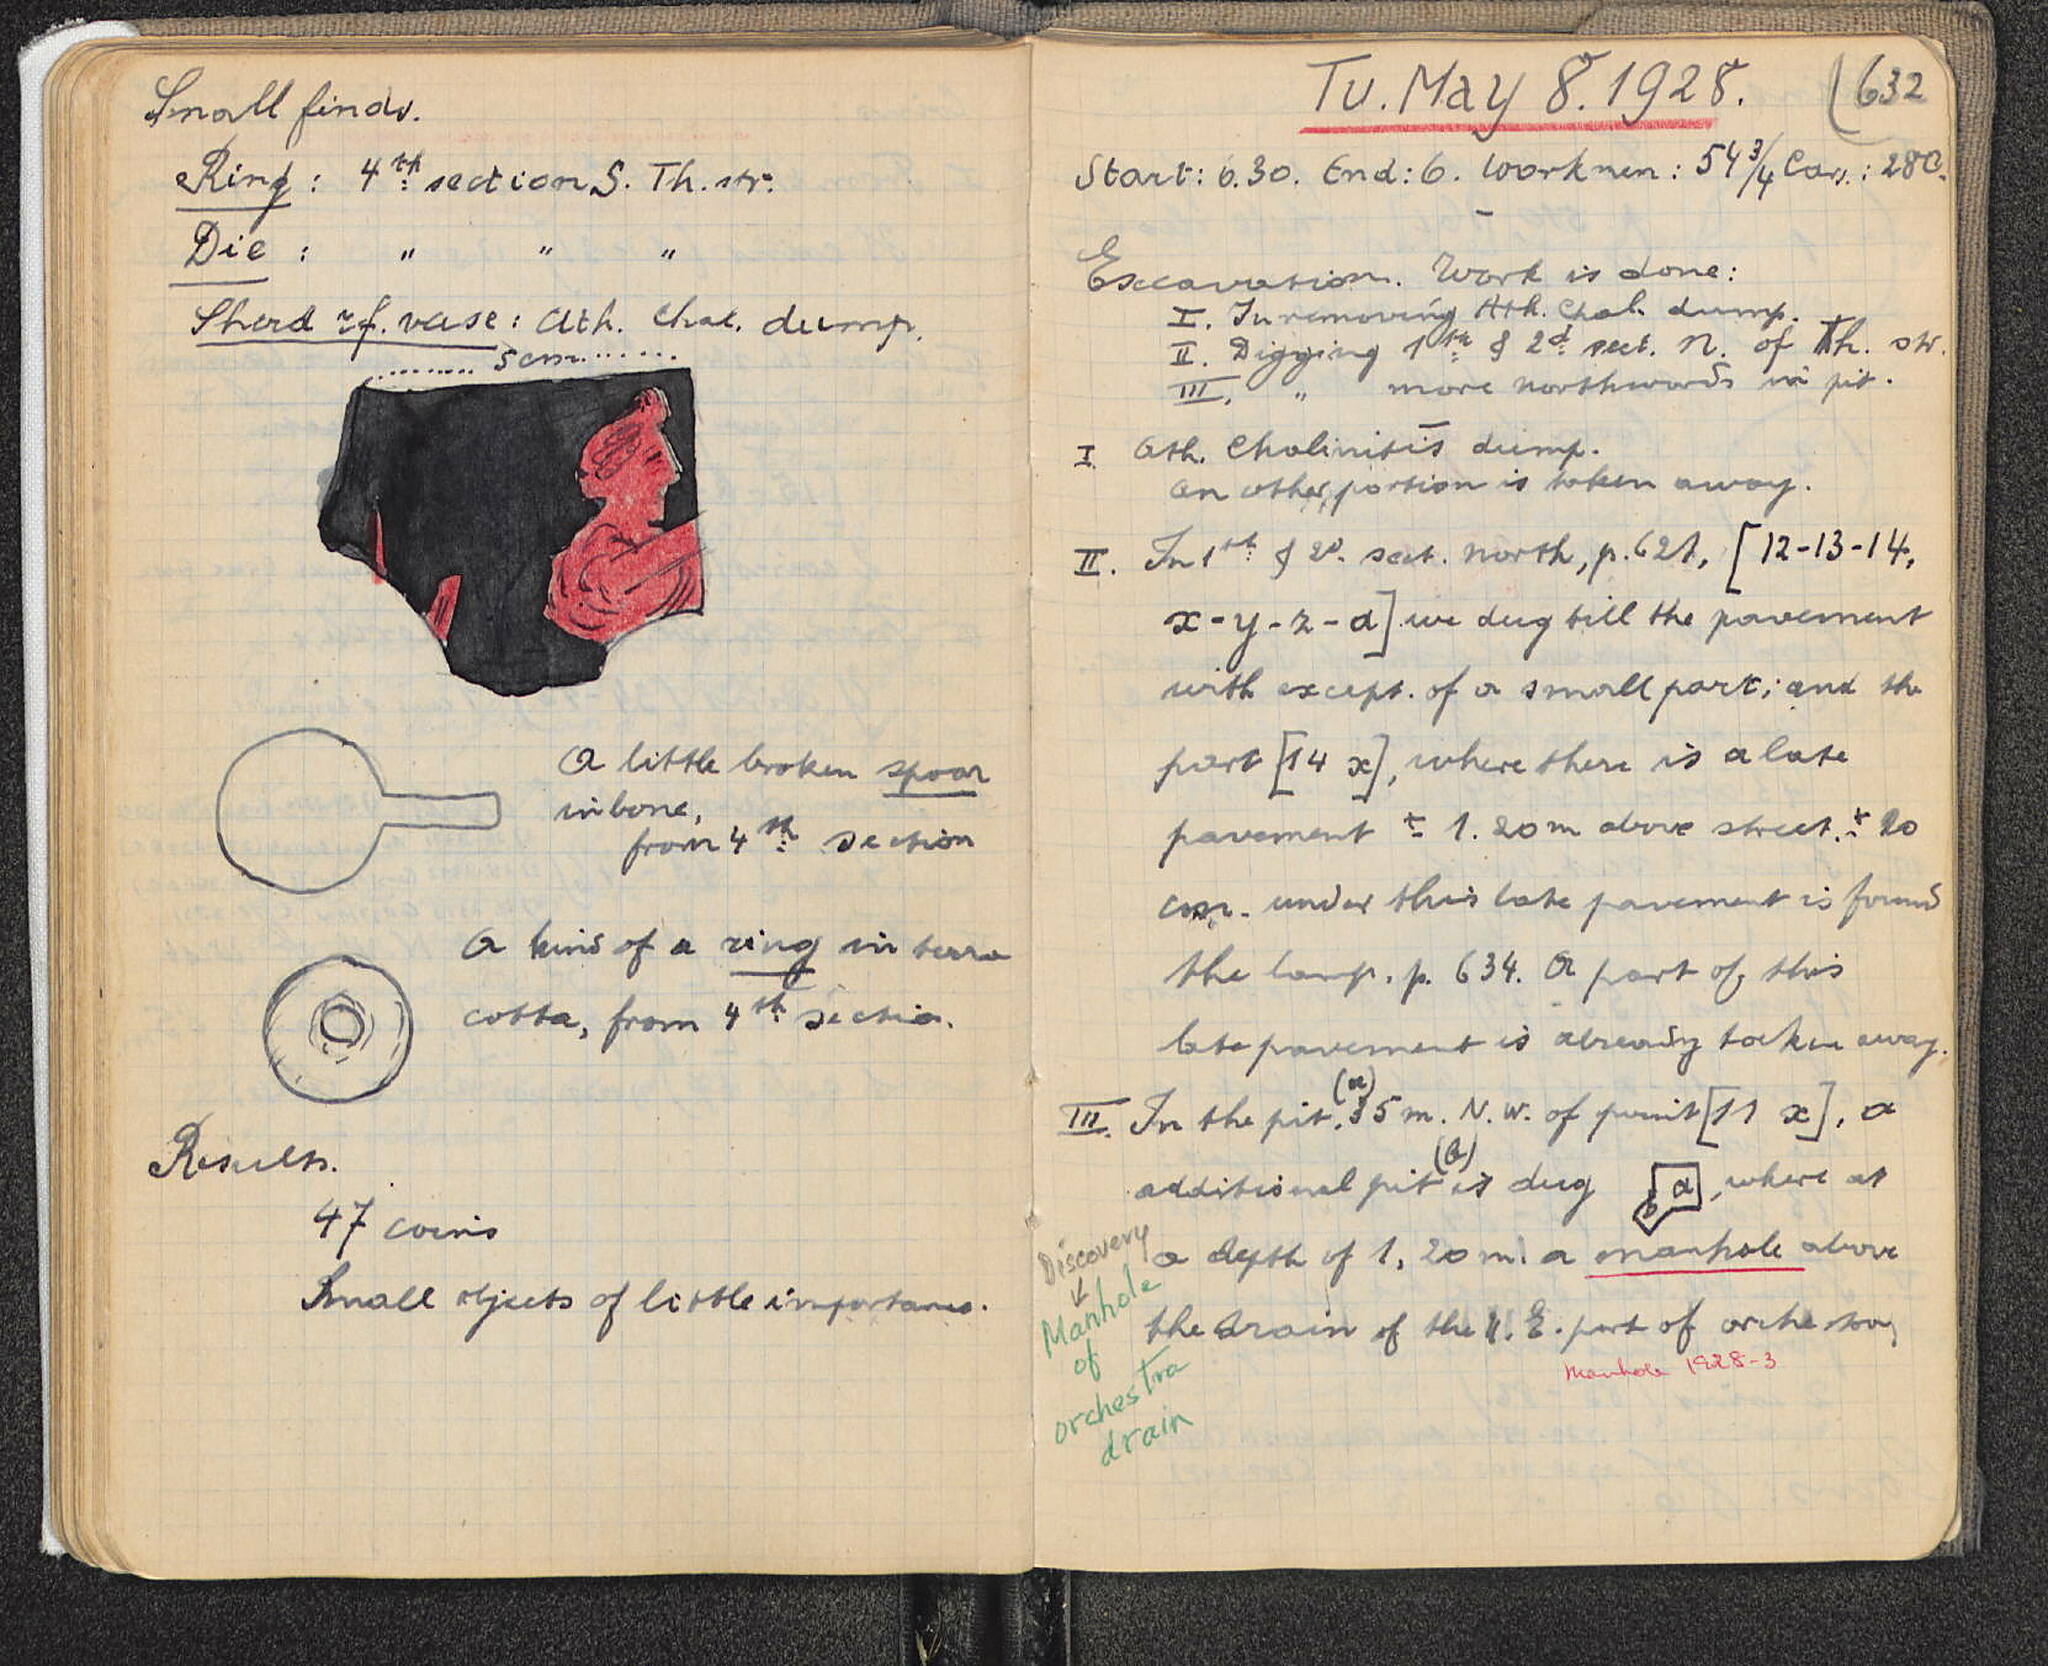 Small finds.
Ring : 4th section S. Th. str.
Die : " " "
Sherd r.f. vase : Ath. Chal. dump.
5 cm
A little broken spoar
in bone,
from 4th section
A kind of a ring in terra
cotta, from 4th section.
Results.
47 coins
Small objects of little importance.
Tu. May 8. 1928.
632
Start: 6.30. End: 6. Workmen: 54 3/4 Cars.: 280.
Excavation. Work is done:
I. In removing Ath. Chal. dump.
II. Digging 1th & 2d sect. N. of Th. str.
III. " more northwards in pit.
I. Ath. Chalinitis dump.
An other portion is taken away.
II. In 1st & 2d. sect. north, p. 621, [12-13-14,
x-y-z-a] we dug till the pavement
with except. of a small part; and the
part [14 x], where there is a late
pavement ± 1.20 m above street. ± 20
cm. under this late pavement is found
the lamp. p. 634. A part of this
late pavement is already tacken away.
III. In the pit, (a) 35 m. N.W. of punit [11 x], a
additional pit (b) is dug b a, where at
a depth of 1,20 m. a manhole above
the drain of the N.E. part of orchestra,
Manhole 1928-3
Discovery
↓
Manhole
of
orchestra
drain